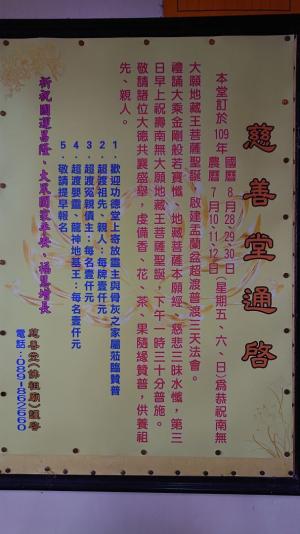 慈善堂通啓
本堂訂於109年國曆8月28、29、30日
農曆7月10、11、12日(星期五、六、日)為恭祝南無
大願地藏王菩薩聖誕，啟建盂蘭盆超渡普渡三天法會。
禮誦大乘金剛般若寶懺、地藏菩薩本願經、慈悲三昧水懺，第三
日早上祝壽南無大願地藏王菩薩聖誕，下午一時三十分普施。
敬請諸位大德共襄盛舉，虔備香、花、茶、果隨緣贊普，供養祖
先、親人。
1．歡迎功德堂上寄放龕主與骨灰之家屬蒞臨贊普
2．超渡祖先、親人：每牌壹仟元
3．超渡冤親債主：每名壹仟元
4．超渡嬰靈、龍神地基主：每名壹仟元
5．敬請提早報名
祈祝國運昌隆、大眾闔家平安、福慧增長
慈善堂(佛祖廟)謹啓
電話：089-862660